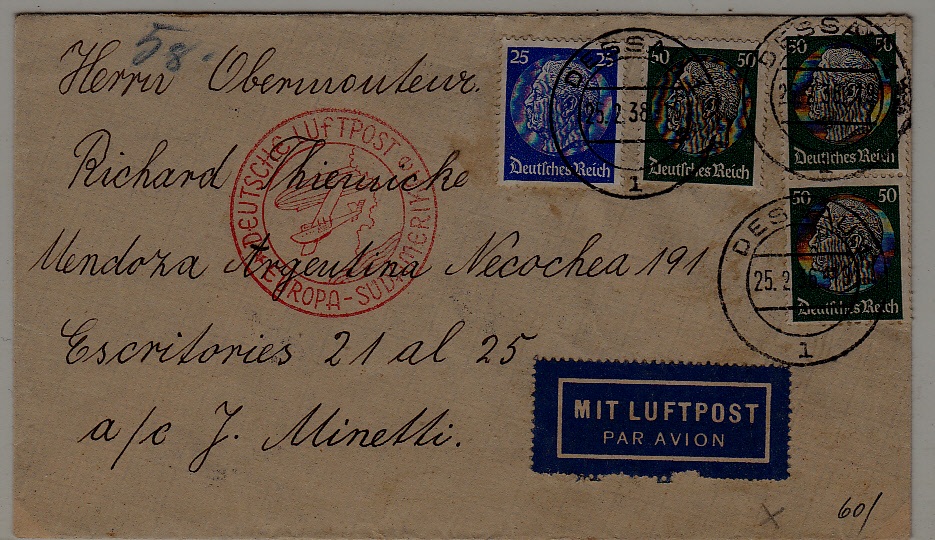 58.
Herrn Obermonteur.
Richard Thiemicke
Mendoza Argentina Necochea 191
Escritories 21 al 25
a/c J. Minetti.
DEUTSCHE LUFTPOST
EUROPA-SÜDAMERIKA
25 25
Deutsches Reich
50 50
Deutsches Reich
50 50
Deutsches Reich
50 50
Deutsches Reich
DESSA
25.2.38
1
DESSA
1
DES
25.2
1
MIT LUFTPOST
PAR AVION
60/